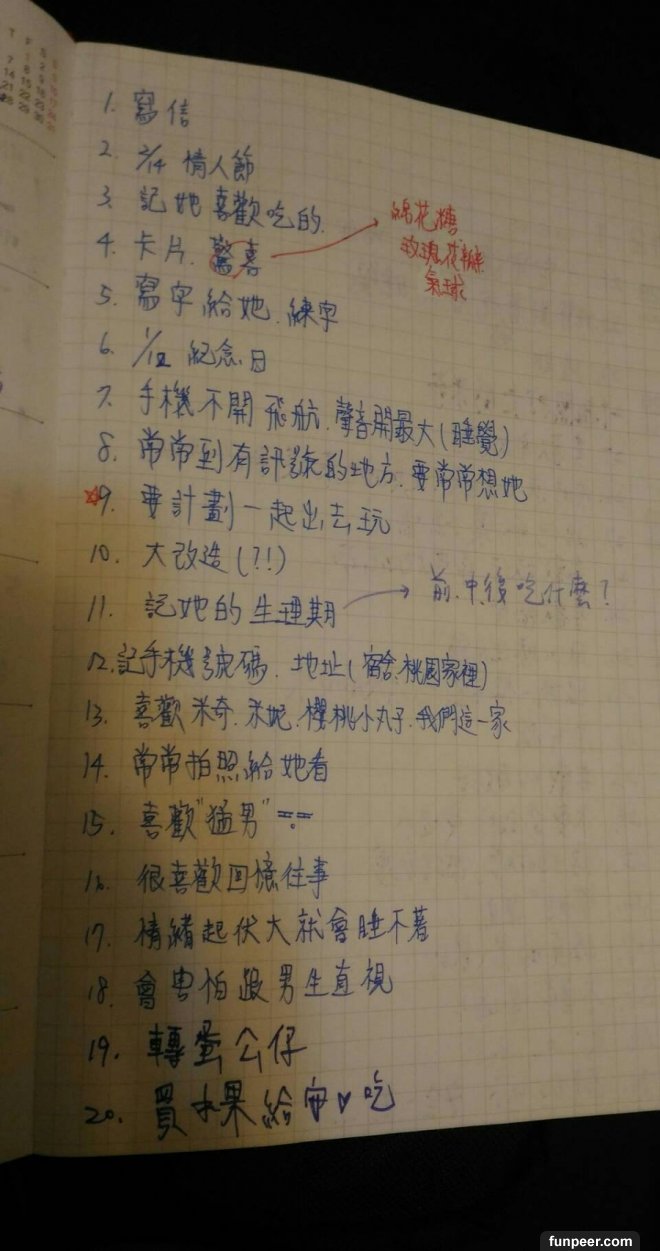 1. 寫信
2. 2/14 情人節
3. 記她喜歡吃的.
4. 卡片. 驚喜
棉花糖
玫瑰花瓣
氣球
5. 寫字給她. 練字
6. 1/12 紀念日
7. 手機不開飛航. 聲音開最大(睡覺)
8. 常常到有訊號的地方. 要常常想她
☆9. 要計劃一起出去玩
10. 大改造(?!)
11. 記她的生理期 → 前.中.後吃什麼?
12. 記手機號碼. 地址(宿舍.桃園家裡)
13. 喜歡米奇.米妮.櫻桃小丸子.我們這一家
14. 常常拍照給她看
15. 喜歡"猛男"
16. 很喜歡回憶往事
17. 情緒起伏大就會睡不著
18. 會害怕跟男生直視
19. 轉蛋公仔
20. 買水果給安♥吃
funpeer.com